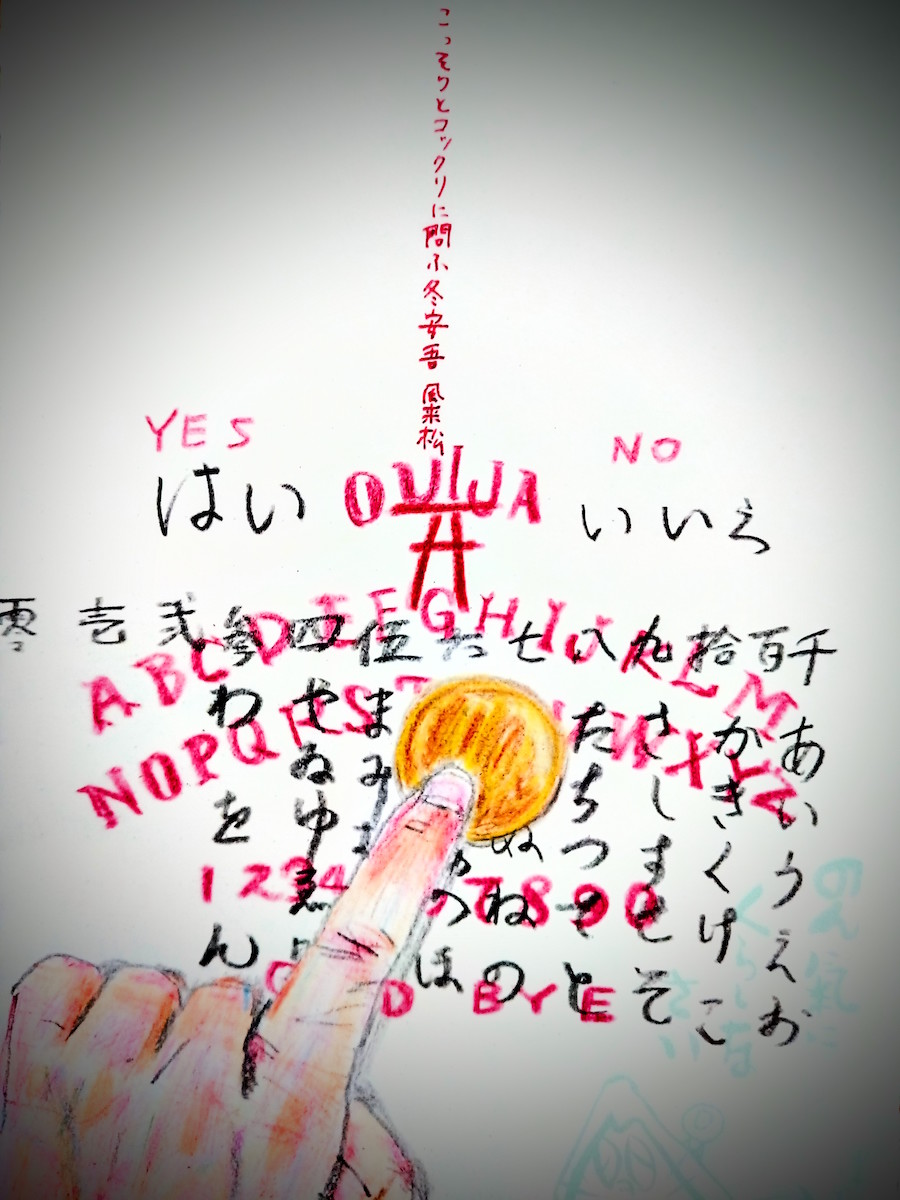 こっそりとコックリに問ふ冬安吾 風来松
YES
NO
はい
OUIJA
いいえ
零 壱 弐 参 四 伍 六 七 八 九 拾 百 千
ABCDEFGHIJKLM
NOPQRS WXYZ
あいうえお
かきくけこ
さしすせそ
たちつてと
ぬねの
ほ
ま み
せ ゐ ゆ
わ を ん
1234 7890
GOOD BYE
のん気に
くらしな
さい